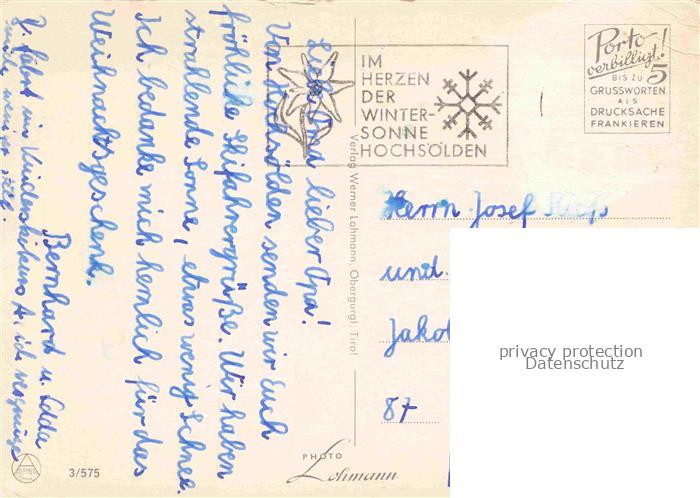 Liebe Oma, lieber Opa!
Von Hochsölden senden wir Euch
fröhliche Skifahrergrüße. Wir haben
strahlende Sonne, etwas wenig Schnee.
Ich bedanke mich herzlich für das
Weihnachtsgeschenk.
Bernhard u.
IM
HERZEN
DER
WINTER-
SONNE
HOCHSÖLDEN
Porto
verbilligt!
BIS ZU 5
GRUSSWORTEN
ALS
DRUCKSACHE
FRANKIEREN
Verlag Werner Lohmann, Obergurgl, Tirol
Herrn Josef
und
Jakob
87
privacy protection
Datenschutz
PHOTO
Lohmann
3/575